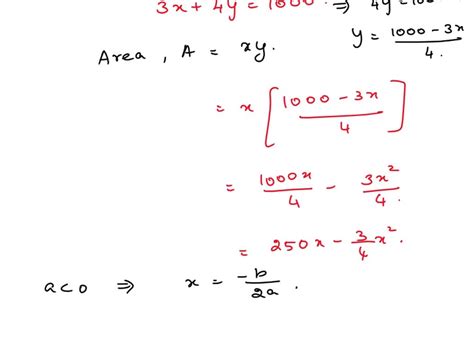 3x + 4y = 1000. ⇒ 4y = 100
Area, A = xy. y = (1000 - 3x)/4.
= x [(1000 - 3x)/4]
= 1000x/4 - 3x²/4.
= 250x - 3/4 x².
a<0 ⇒ x = -b/2a.